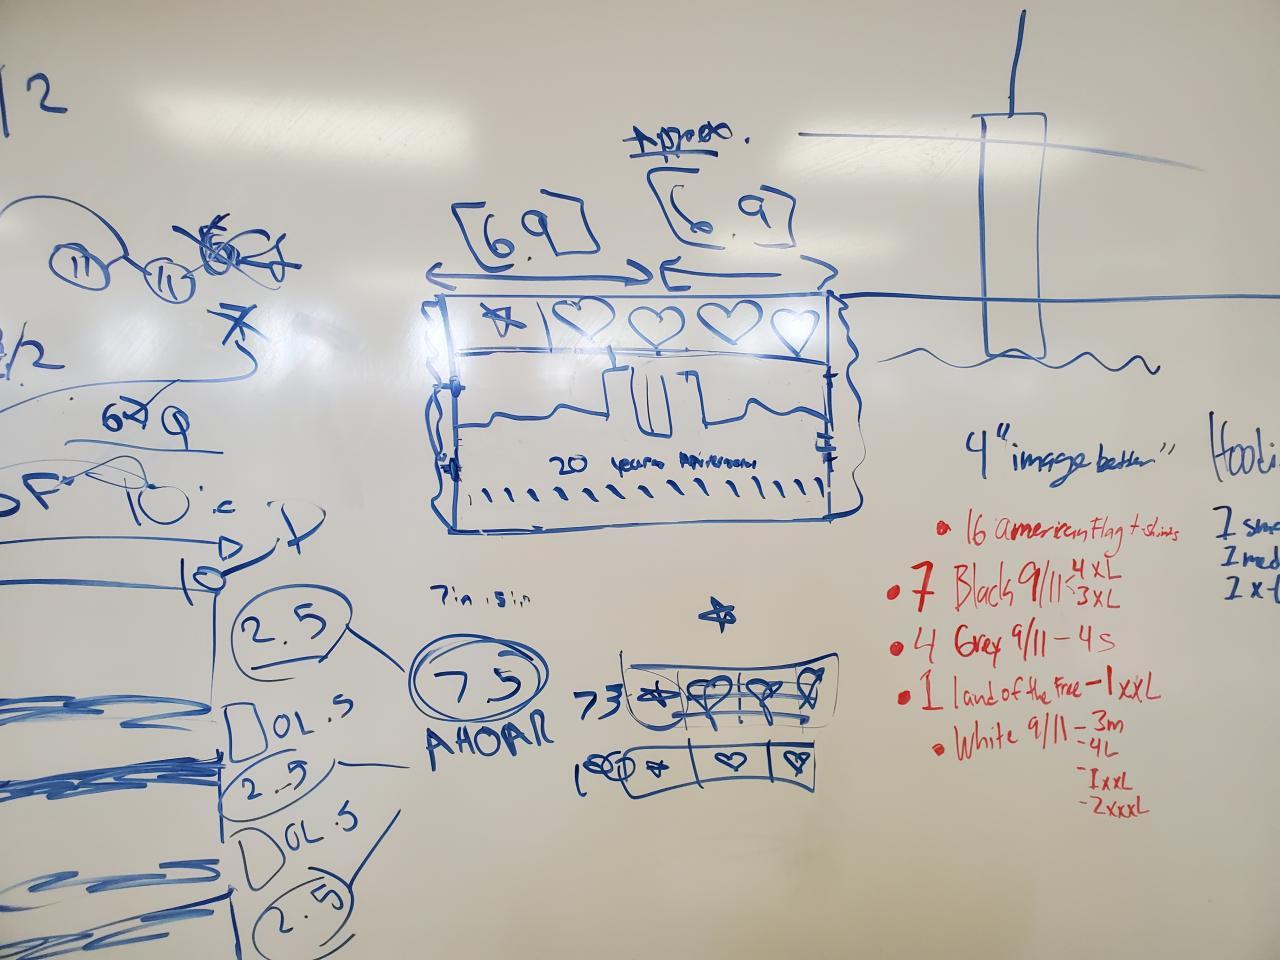 /2
Approx.
[6.9] [6.9]
11 11
/2
20 years
7in .5in
2.5
75
AHOAR
DOL .5
2.5
DOL .5
2.5
73
4" image better"
• 16 american Flag t-shirts
• 7 Black 9/11 < 4xL
3xL
• 4 Grey 9/11 - 4s
• 1 land of the Free - 1xxL
• White 9/11 - 3m
- 4L
- 1xxL
- 2xxxL
Hoodi
1 sm
1 med
1 x-